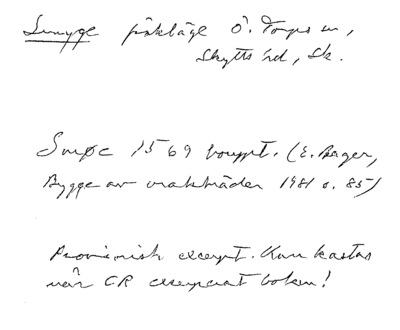 Smyge fiskläge Ö. Torps sn,
Skytts hd, Sk.
Smøe 1569 bouppt. (E. Bager,
Bygge av vrakbräder 1981 s. 85)
Provisorisk excerpt. Kan kastas
när CR excerperat boken!